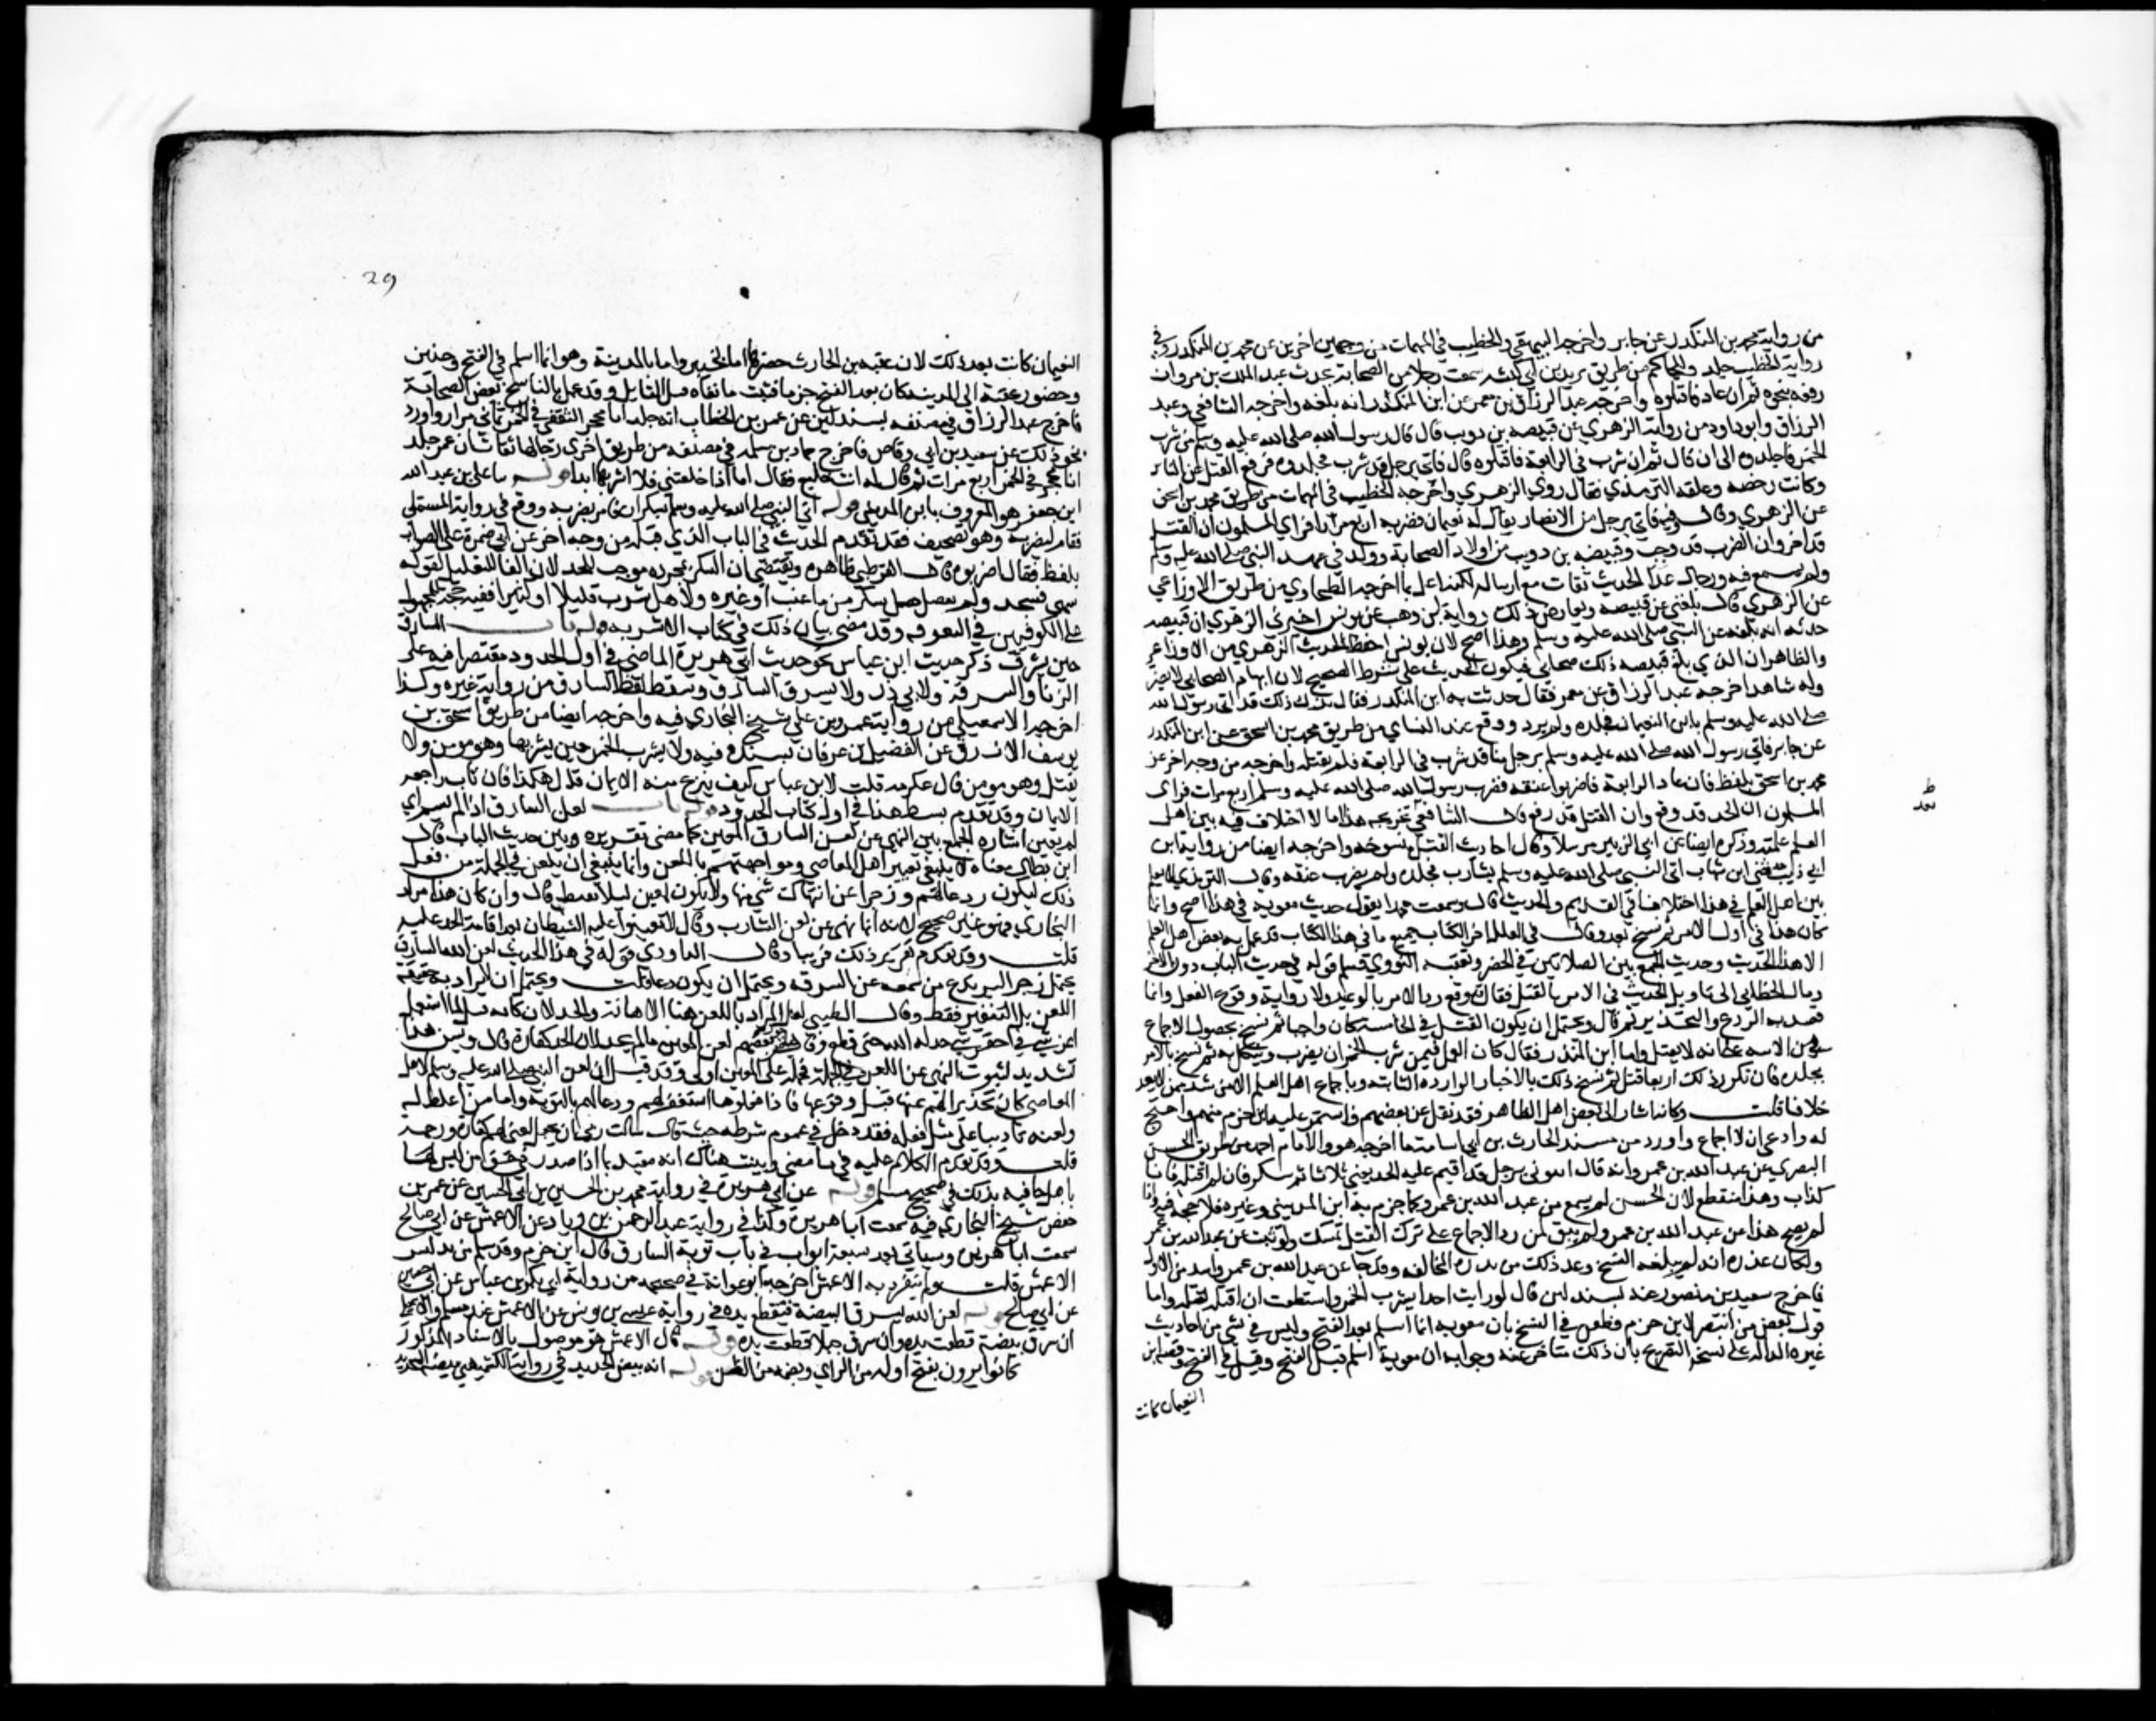 من رواية محمد بن المنكدر عن جابر واخرجه البيهقي والخطيب في المبهمات من وجهين اخرين عن محمد بن المنكدر وفي
رواية الخطيب جلد وللحاكم من طريق يزيد بن ابي كبشة سمعت رجلا من الصحابة يحدث عبد الملك بن مروان
رفعه بنحوه ثم ان عاد فاقتلوه واخرجه عبد الرزاق عن معمر عن ابن المنكدر انه بلغه واخرجه الشافعي وعبد
الرزاق وابو داود من رواية الزهري عن قبيصه بن دويب قال قال رسول الله صلى الله عليه وسلم من شرب
الخمر فاجلدوه الى ان قال ثم ان شرب في الرابعة فاقتلوه قال فاتي برجل قد شرب فجلده ثم رفع القتل عن الناس
وكانت رخصه وعلقه الترمذي فقال روى الزهري واخرجه الخطيب في المبهمات من طريق محمد بن اسحق
عن الزهري وقال فيه فاتي برجل من الانصار يقال له نعيمان فضربه اربع مرات فراي المسلمون ان القتل
قد اخر وان الضرب قد وجب وقبيصه بن دويب من اولاد الصحابة وولد في عهد النبي صلى الله عليه وسلم
ولم يسمع منه ورجال هذا الحديث ثقات مع ارساله لكنه اعل بما اخرجه الطحاوي من طريق الاوزاعي
عن الزهري قال بلغني عن قبيصه ويعارض ذلك رواية ابن وهب عن يونس اخبرني الزهري ان قبيصه
حدثه انه بلغه عن النبي صلى الله عليه وسلم وهذا اصح لان يونس احفظ لحديث الزهري من الاوزاعي
والظاهر ان الذي بلغ قبيصه ذلك صحابي فيكون الحديث على شرط الصحيح لان ابهام الصحابي لا يضر
وله شاهد اخرجه عبد الرزاق عن معمر فقال حدثت به ابن المنكدر فقال ترك ذلك قد اتي رسول الله
صلى الله عليه وسلم بابن النعيمان فجلده ولم يزد ووقع عند النساي من طريق محمد بن اسحق عن ابن المنكدر
عن جابر فاتي رسول الله صلى الله عليه وسلم برجل منا قد شرب في الرابعة فلم يقتله واخرجه من وجه اخر عن
محمد بن اسحق بلفظ فان عاد الرابعة فاضربوا عنقه فضرب رسول الله صلى الله عليه وسلم اربع مرات فراى
المسلمون ان الحد قد وقع وان القتل قد رفع قال الشافعي بعد تخريجه هذا ما لا اختلاف فيه بين اهل
العلم علمته وذكره ايضا عن ابي الزبير مرسلا وقال احاديث القتل منسوخه واخرجه ايضا من رواية ابن
ابي ذيب حدثني ابن شهاب اتى النبي صلى الله عليه وسلم بشارب فجلده ولم يضرب عنقه وقال الترمذي لا نعلم
بين اهل العلم في هذا اختلافا في القديم والحديث قال وسمعت محمدا يقول حديث معويه في هذا اصح وانما
كان هذا في اول الامر ثم نسخ بعد وقال في العلل اخر الكتاب جميع ما في هذا الكتاب قد عمل به بعض اهل العلم
الا هذا الحديث وحديث الجمع بين الصلاتين في الحضر وتعقبه النووي فسلم قوله في حديث الباب دون الاخر
ومال الخطابي الى تاويل الحديث في الامر بالقتل فقال قد يقع ورد الامر بالوعيد ولا يراد به وقوع الفعل وانما
قصد به الردع والتحذير ثم قال ويحتمل ان يكون القتل في الخامسة كان واجبا ثم نسخ بحصول الاجماع
من الامه على انه لا يقتل واما ابن المنذر فقال كان العمل فيمن شرب الخمر ان يضرب وينكل به ثم نسخ بالامر
بجلده فان تكرر ذلك اربعا قتل ثم نسخ ذلك بالاخبار الوارده الثابته وباجماع اهل العلم الا من شذ ممن لا يعد
خلافا قلت وكانه اشار الى بعض اهل الظاهر فقد نقل عن بعضهم واستمر عليه ابن حزم منهم واحتج
له وادعى ان لا اجماع واورد من مسند الحارث بن ابي اسامة ما اخرجه هو والامام احمد من طريق الحسن
البصري عن عبد الله بن عمرو انه قال ائتوني برجل قد اقيم عليه الحد يعني ثلاثا ثم سكر فان لم اقتله فانا
كذاب وهذا منقطع لان الحسن لم يسمع من عبد الله بن عمرو كما جزم به ابن المديني وغيره فلا حجة فيه واذا
لم يصح هذا عن عبد الله بن عمرو لم يبق لمن رد الاجماع على ترك القتل متمسك ولو ثبت عن عبد الله بن عمر
ولكان عذره انه لم يبلغه النسخ وعد ذلك من نزره المخالف وقد جا عن عبد الله بن عمرو اشد من الاول
فاخرج سعيد بن منصور عنه بسند لين قال لو رايت احدا يشرب الخمر واستطعت ان اقتله لقتلته واما
قول بعض من انتصر لابن حزم فطعن في النسخ بان معويه انما اسلم بعد الفتح وليس في شي من احاديث
غيره الداله على نسخه التصريح بان ذلك متاخر عنه وجوابه ان معوية اسلم قبل الفتح وقيل في الفتح وقصة ابن
النعيمان كانت
ط
بعد
29
النعيمان كانت بعد ذلك لان عقبه بن الحارث حضرها اما بحنين واما بالمدينة وهو انما اسلم في الفتح وحنين
وحضور عقبة الى المدينه كان بعد الفتح جزما فثبت ما نفاه هذا القايل وقد عمل بالناسخ بعض الصحابة
فاخرج عبد الرزاق في مصنفه بسند لين عن عمر بن الخطاب انه جلد ابا محجن الثقفي في الخمر ثماني مرار واورد
نحو ذلك عن سعد بن ابي وقاص فاخرج حماد بن سلمه في مصنفه من طريق اخرى رجالها ثقات ان عمر جلد
ابا محجن في الخمر اربع مرات ثم قال له انت خليع فقال اما اذا خلعتني فلا اشربها ابدا قوله نا علي بن عبد الله
ابن جعفر هو المعروف بابن المديني قوله اتي النبي صلى الله عليه وسلم بسكران فامر بضربه ووقع في رواية المستملي
فقام ليضربه وهو تصحيف فقد تقدم الحديث في الباب الذي قبله من وجه اخر عن ابي ضمرة على الصواب
بلفظ فقال اضربوه قال القرطبي ظاهره يقتضي ان السكر بمجرده موجب للحد لان الفا للتعليل كقوله
سهى فسجد ولم يفصل هل سكر من ما عنب او غيره ولا هل شرب قليلا او كثيرا ففيه حجة للجمهور
على الكوفيين في التفرقه وقد مضى بيان ذلك في كتاب الاشربه قوله باب السارق
حين يسرق ذكر حديث ابن عباس نحو حديث ابي هريرة الماضي في اول الحدود مقتصرا فيه على
الزنا والسرقة ولابي ذر ولا يسرق السارق وسقط لفظ السارق من رواية غيره وكذا
اخرجه الاسمعيلي من رواية عمرو بن علي شيخ البخاري فيه واخرجه ايضا من طريق اسحق بن
يوسف الازرق عن الفضيل بن غزوان بسنده فيه ولا يشرب الخمر حين يشربها وهو مومن ولا
يقتل وهو مومن قال عكرمه قلت لابن عباس كيف ينزع منه الايمان قال هكذا فان تاب راجعه
الايمان وقد تقدم بسط هذا في اول كتاب الحدود قوله باب لعن السارق اذا لم يسم اي
لم يعين اشارة الى الجمع بين النهي عن لعن السارق المعين كما مضى تقريره وبين حديث الباب قال
ابن بطال معناه لا ينبغي تعيير اهل المعاصي ومواجهتهم باللعن وانما ينبغي ان يلعن في الجملة من فعل
ذلك ليكون ردعا لهم وزجرا عن انتهاك شي منها ولا يكون لمعين ليلا يقنط قال وان كان هذا مراد
البخاري فهو غير صحيح لانه انما نهى عن لعن الشارب وقال لا تعينوا عليه الشيطان بعد اقامة الحد عليه
قلت وقد تقدم تقرير ذلك قريبا وقال الداودي قوله في هذا الحديث لعن الله السارق
يحتمل زجر السرقه ويحتمل ان يكون دعا قلت ويحتمل ان لا يراد به حقيقة
اللعن بل التنفير فقط وقال الطيبي لعل المراد باللعن هنا الاهانة والخذلان كانه قيل لما استعمل
اعز شي في احقر شي خذله الله حتى قطع لعن المعين ما لم يحد لان الحد كفارة قال وليس هذا
بسديد لثبوت النهي عن اللعن في الجملة فحمله على المعين اولى وقد قيل ان لعن النبي صلى الله عليه وسلم لاهل
المعاصي كان تحذيرا لهم عنها قبل وقوعها فاذا فعلوها استغفر لهم ودعا لهم بالتوبة واما من اغلظ له
ولعنه تاديبا على مثل فعله فقد دخل في عموم شرطه حيث قال سالت ربي ان يجعل لعني لهم كفارة ورحمة
قلت وقد تقدم الكلام عليه في ما مضى وبينت هناك انه مقيد بما اذا صدر في حق من ليس لها
باهل كما فيه بذلك في صحيح مسلم قوله عن ابي هريرة في رواية محمد بن الحسين بن ابي الحنين عن عمر بن
حفص شيخ البخاري فيه سمعت ابا هريرة وكذا في رواية عبد الواحد بن زياد عن الاعمش عن ابي صالح
سمعت ابا هريرة وسياتي بعد سبعة ابواب في باب توبة السارق قال ابن حزم وقد سلم من تدليس
الاعمش قلت ولم ينفرد به الاعمش اخرجه ابو عوانة في صحيحه من رواية ابي بكر بن عياش عن ابي حصين
عن ابي صالح قوله لعن الله يسرق البيضة فتقطع يده في رواية عيسى بن يونس عن الاعمش عند مسلم والاسمعيلي
ان سرق بيضة قطعت يده وان سرق حبلا قطعت يده قوله قال الاعمش هو موصول بالاسناد المذكور
كانوا يرون بفتح اوله من الراي وبضمه من الظن قوله انه بيض الحديد في رواية الكشميهني بيضة الحديد